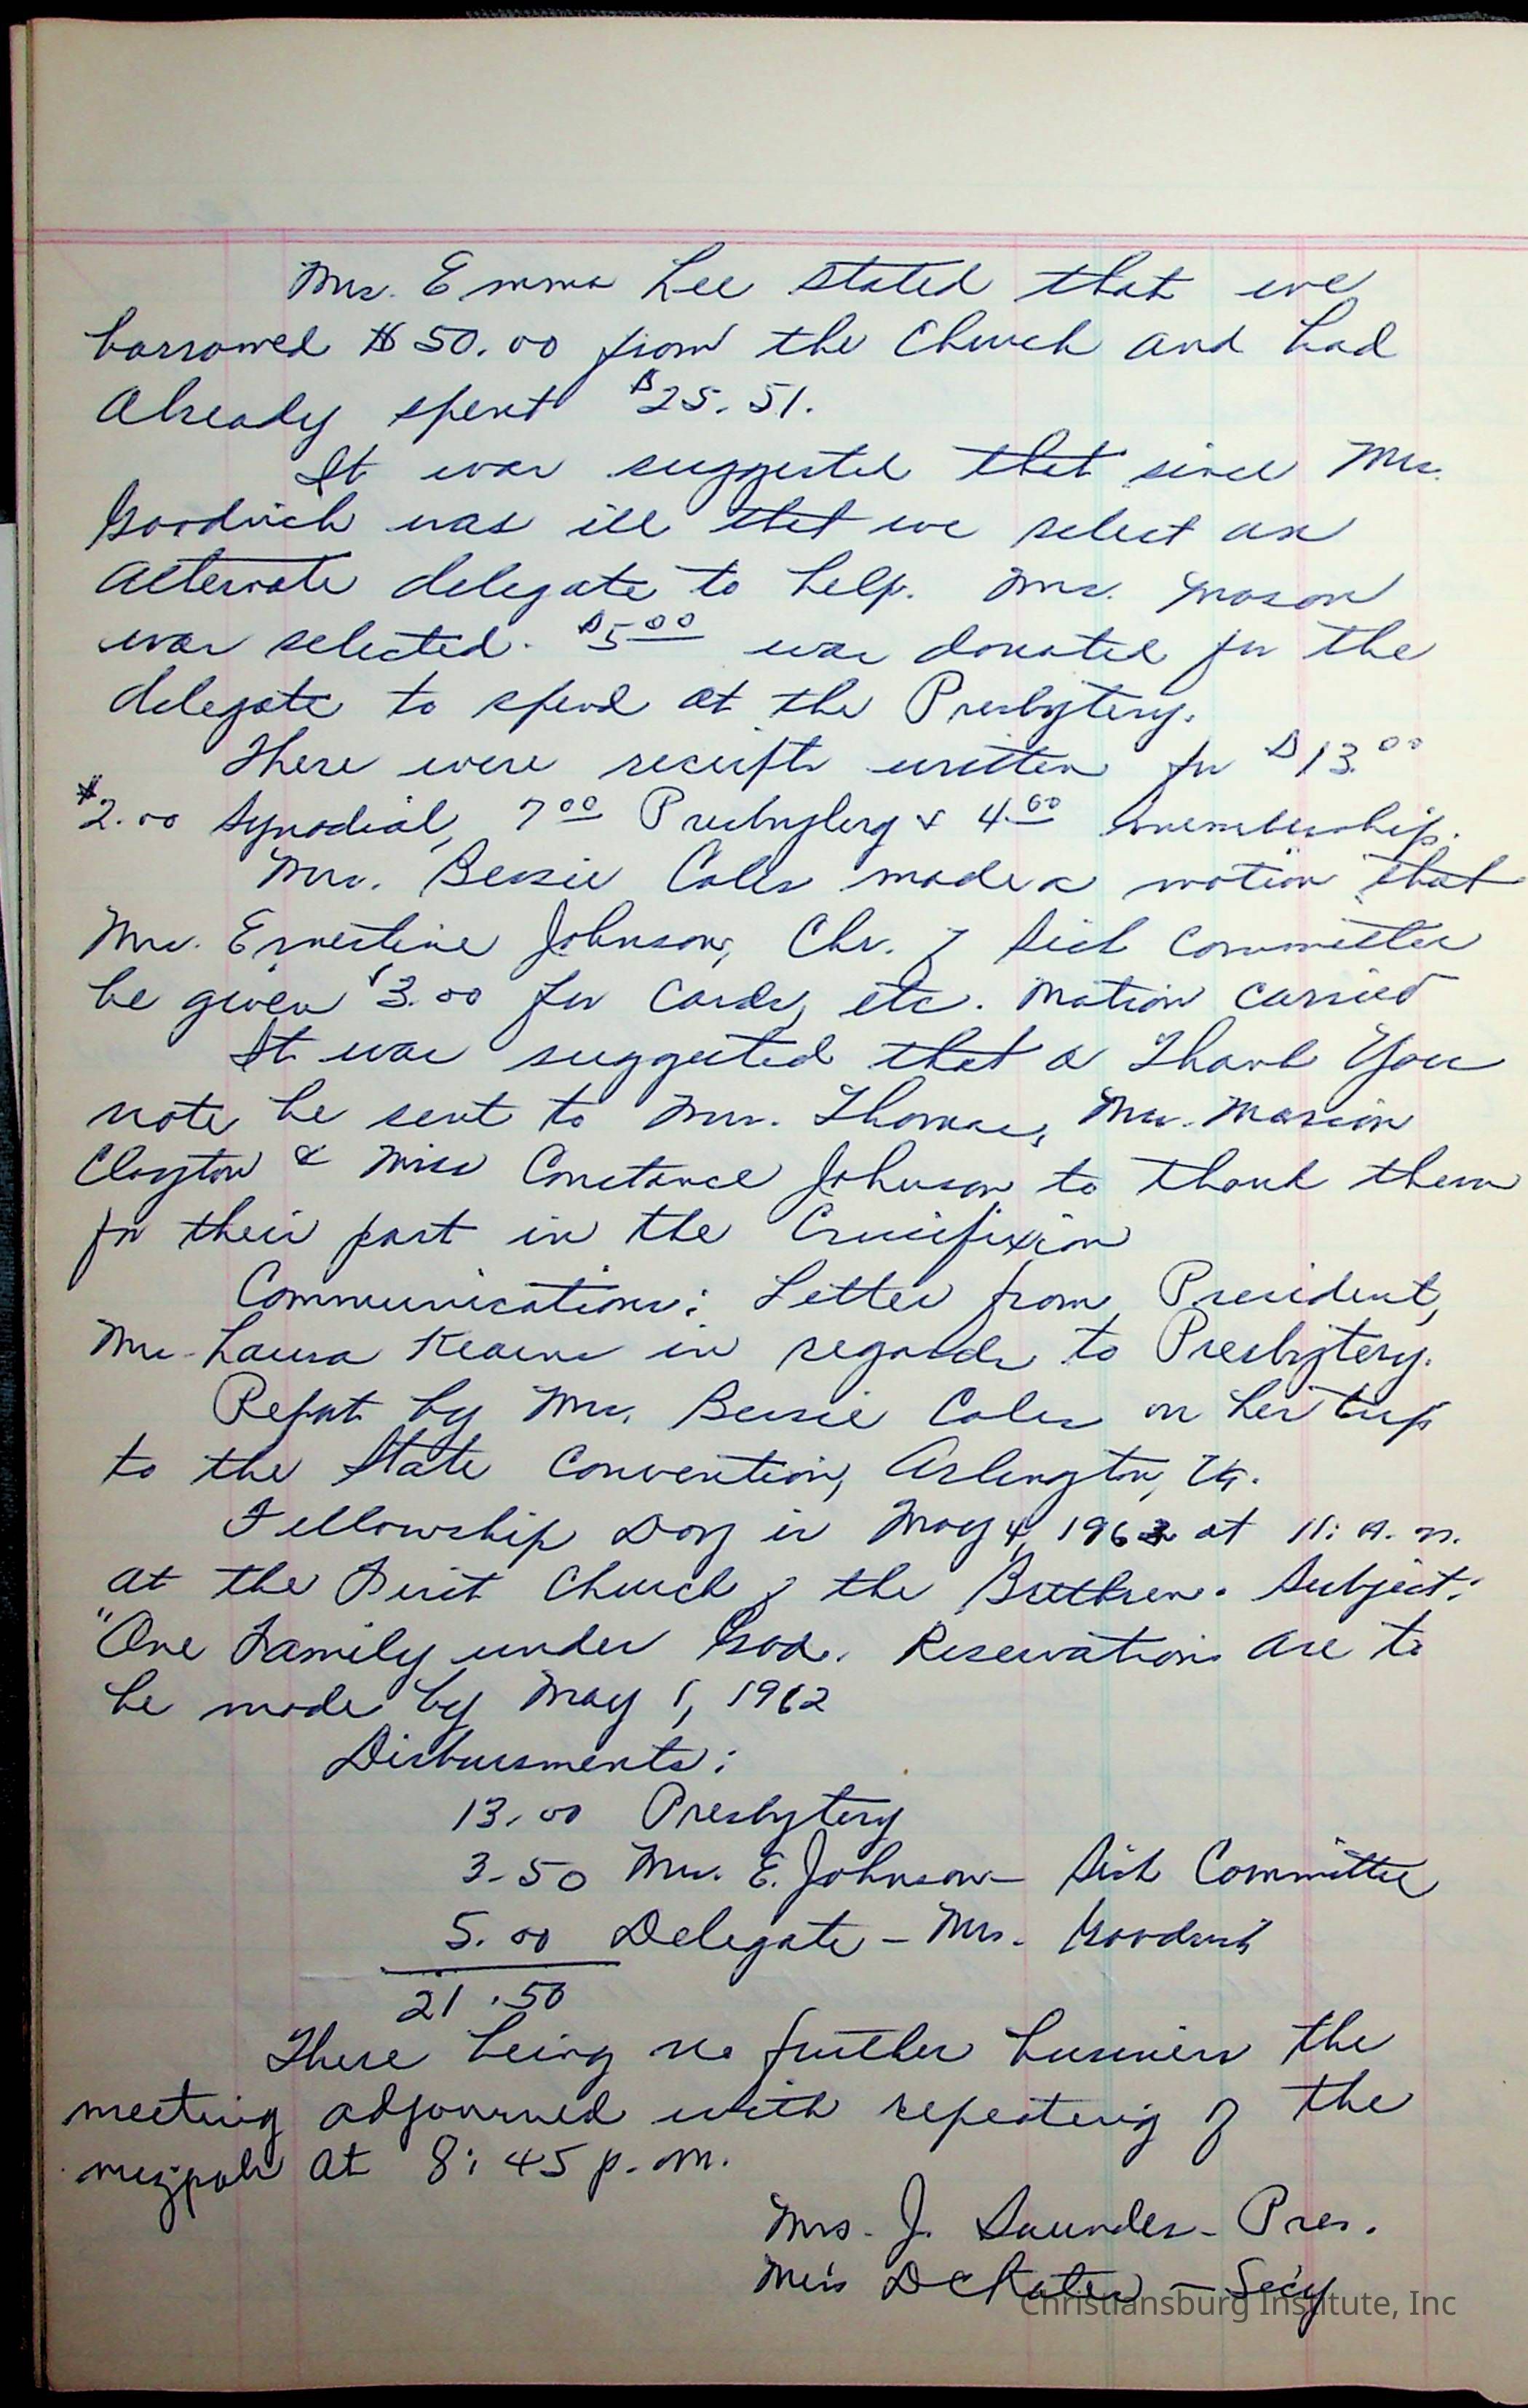 Mrs. Emma Lee stated that we
borrowed $50.00 from the Church and had
Already spent $25.51.
It was suggested that since Mrs.
Goodrich was ill that we select an
Alternate delegate to help. Mrs. Mason
was selected. $5.00 was donated for the
delegate to spend at the Presbytery.
There were receipts written for $13.00
$2.00 Synodial, 7.00 Presbytery & 4.00 membership.
Mrs. Bessie Coles made a motion that
Mrs. Ernestine Johnson, Chr. of Sick Committee
be given $3.00 for Cards, etc. Motion carried
It was suggested that a Thank You
note be sent to Mrs. Thomas, Mrs. Marion
Clayton & Miss Constance Johnson to thank them
for their part in the Crucifixion
Communications: Letter from President,
Mrs. Laura Kearns in regards to Presbytery.
Report by Mrs. Bessie Coles on her trip
to the State Convention, Arlington, Va.
Fellowship Day is May 4, 1962 at 11: A. m.
at the First Church of the Brethren. Subject:
"One Family under God. Reservations are to
be made by May 1, 1962
Disbursments:
13.00 Presbytery
3.50 Mrs. E. Johnson - Sick Committee
5.00 Delegate - Mrs. Goodrich
21.50
There being no further business the
meeting adjourned with repeating of the
mizpah at 8:45 p.m.
Mrs. J. Saunders - Pres.
Miss - Sec'y
Christiansburg Institute, Inc